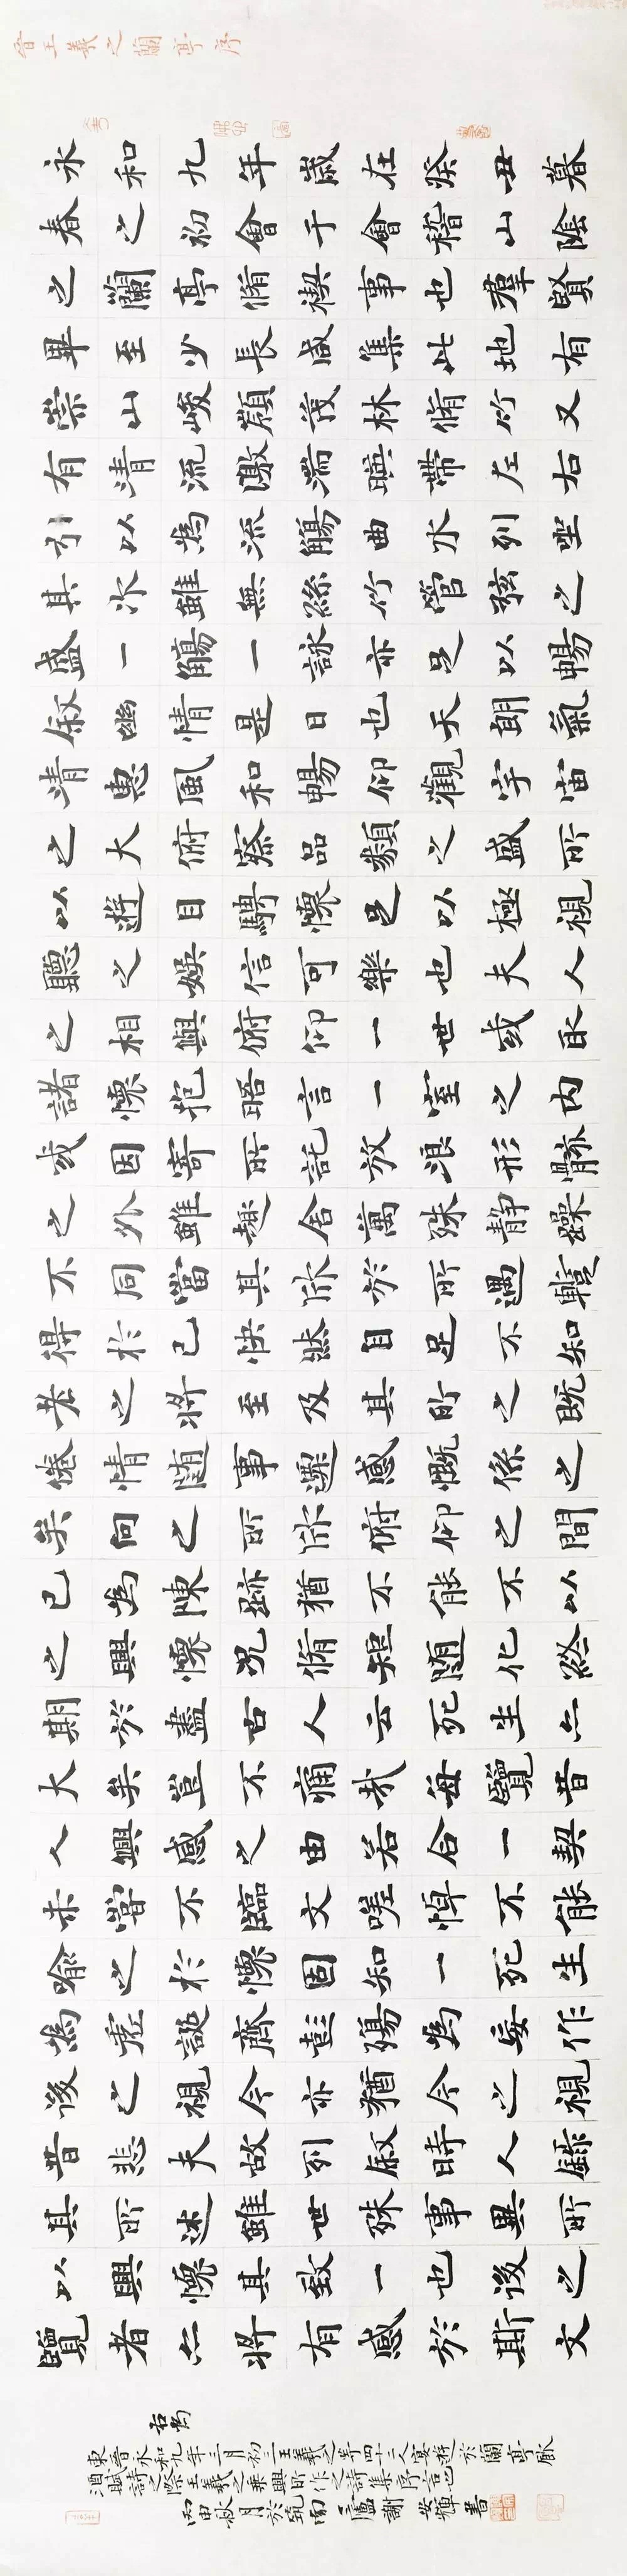 晉王羲之蘭亭序
永和九年歲在癸丑暮
春之初會于會稽山陰
之蘭亭脩禊事也羣賢
畢至少長咸集此地有
崇山峻嶺茂林脩竹又
有清流激湍暎帶左右
引以為流觴曲水列坐
其次雖無絲竹管弦之
盛一觴一詠亦足以暢
叙幽情是日也天朗氣
清惠風和暢仰觀宇宙
之大俯察品類之盛所
以遊目騁懷足以極視
聽之娛信可樂也夫人
之相與俯仰一世或取
諸懷抱晤言一室之內
或因寄所託放浪形骸
之外雖趣舍萬殊静躁
不同當其欣於所遇蹔
得於己快然自足不知
老之將至及其所之既
惓情随事遷感慨係之
矣向之所欣俯仰之間
已為陳跡猶不能不以
之興懷况脩短随化終
期於盡古人云死生亦
大矣豈不痛哉每覽昔
人興感之由若合一契
未嘗不臨文嗟悼不能
喻之於懷固知一死生
為虛誕齊彭殤為妄作
後之視今亦猶今之視
昔悲夫故列叙時人錄
其所述雖世殊事異所
以興懷其致一也後之
覽者亦將有感於斯文
右為
東晉永和九年三月初三王羲之等四十二人宴遊於蘭亭
酒賦詩之際王羲之乘興所作之詩集序言也
丙申秋月於南廬謝安輝書